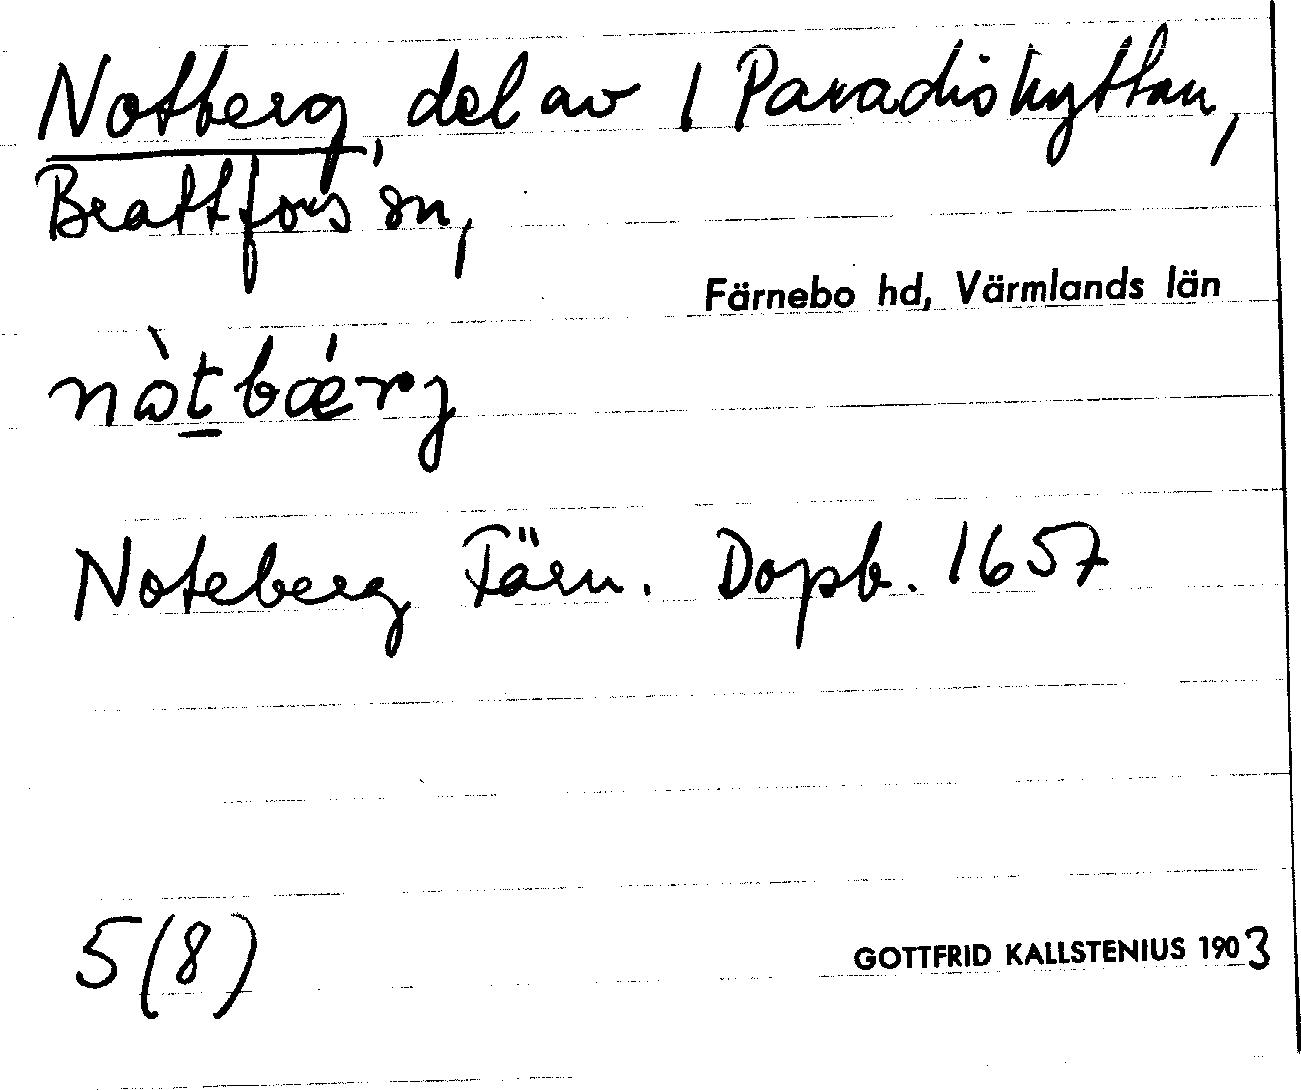 Notberg, del av 1 Paradishyttan,
Brattfors sn,
Färnebo hd, Värmlands län
nòt̲bǽrj
Noteberg Färn. Dopb. 1657
5(8)
GOTTFRID KALLSTENIUS 1903